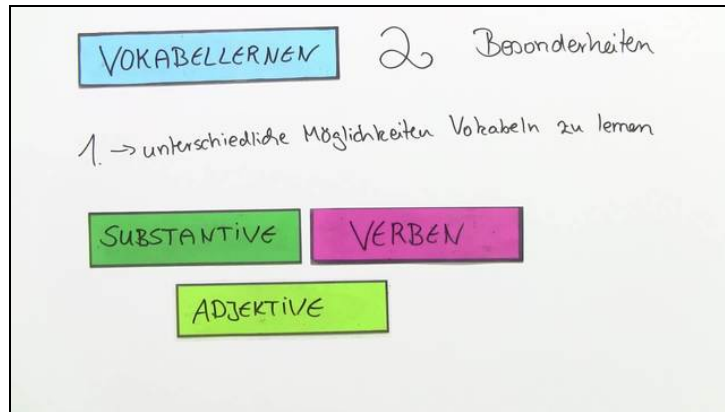 VOKABELLERNEN 2 Besonderheiten
1. → unterschiedliche Möglichkeiten Vokabeln zu lernen
SUBSTANTIVE VERBEN
ADJEKTIVE